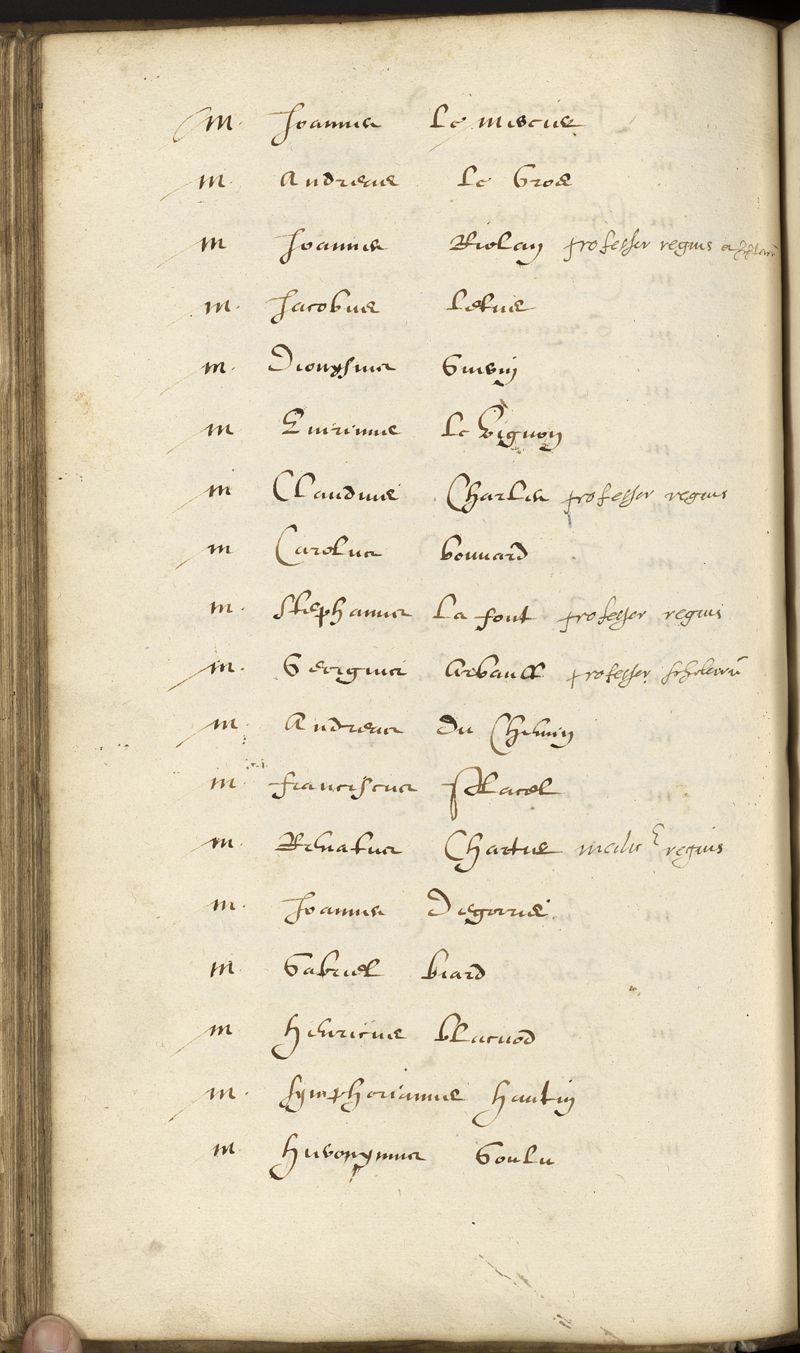 M. Joannes Le Mescre
M. Andreas Le Gros
M Joannes Riolan professor regius
M. Jacobus Letus
M. Dionysius Guerin
M Quirinus Le Vignon
M Claudius Charles professor regius
M Carolus bouuard
M. Stephanus La font professor regius
M. Georgius Arbault professor scholarũ
M. Andreas Du Chemin
M. franciscus Placel
M. Renatus Chartus medic9 regius
M. Joannes Degorris
M. Gabriel biard
M henricus blacuod
M. Symphorianus hautin
M hieronymus Goulu